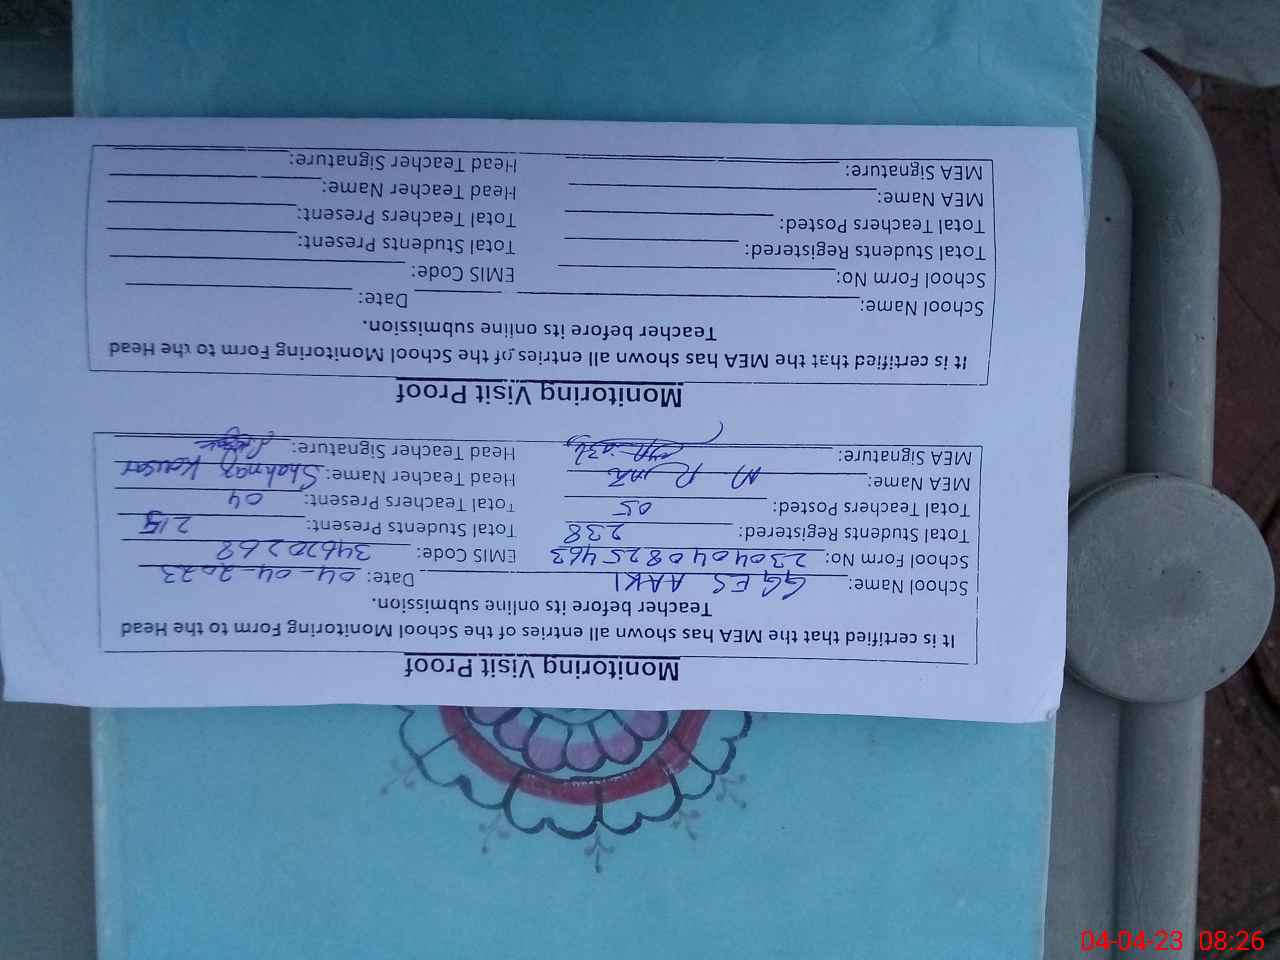 Monitoring Visit Proof
It is certified that the MEA has shown all entries of the School Monitoring Form to the Head
Teacher before its online submission.
School Name: GGES AAKI Date: 04-04-2023
School Form No: 230404082 5463 EMIS Code: 34620268
Total Students Registered: 238 Total Students Present: 215
Total Teachers Posted: 05 Total Teachers Present: 04
MEA Name: M Head Teacher Name: Shahnaz Kousar
MEA Signature: Head Teacher Signature:
Monitoring Visit Proof
It is certified that the MEA has shown all entries of the School Monitoring Form to the Head
Teacher before its online submission.
School Name: Date:
School Form No: EMIS Code:
Total Students Registered: Total Students Present:
Total Teachers Posted: Total Teachers Present:
MEA Name: Head Teacher Name:
MEA Signature: Head Teacher Signature:
04-04-23 08:26